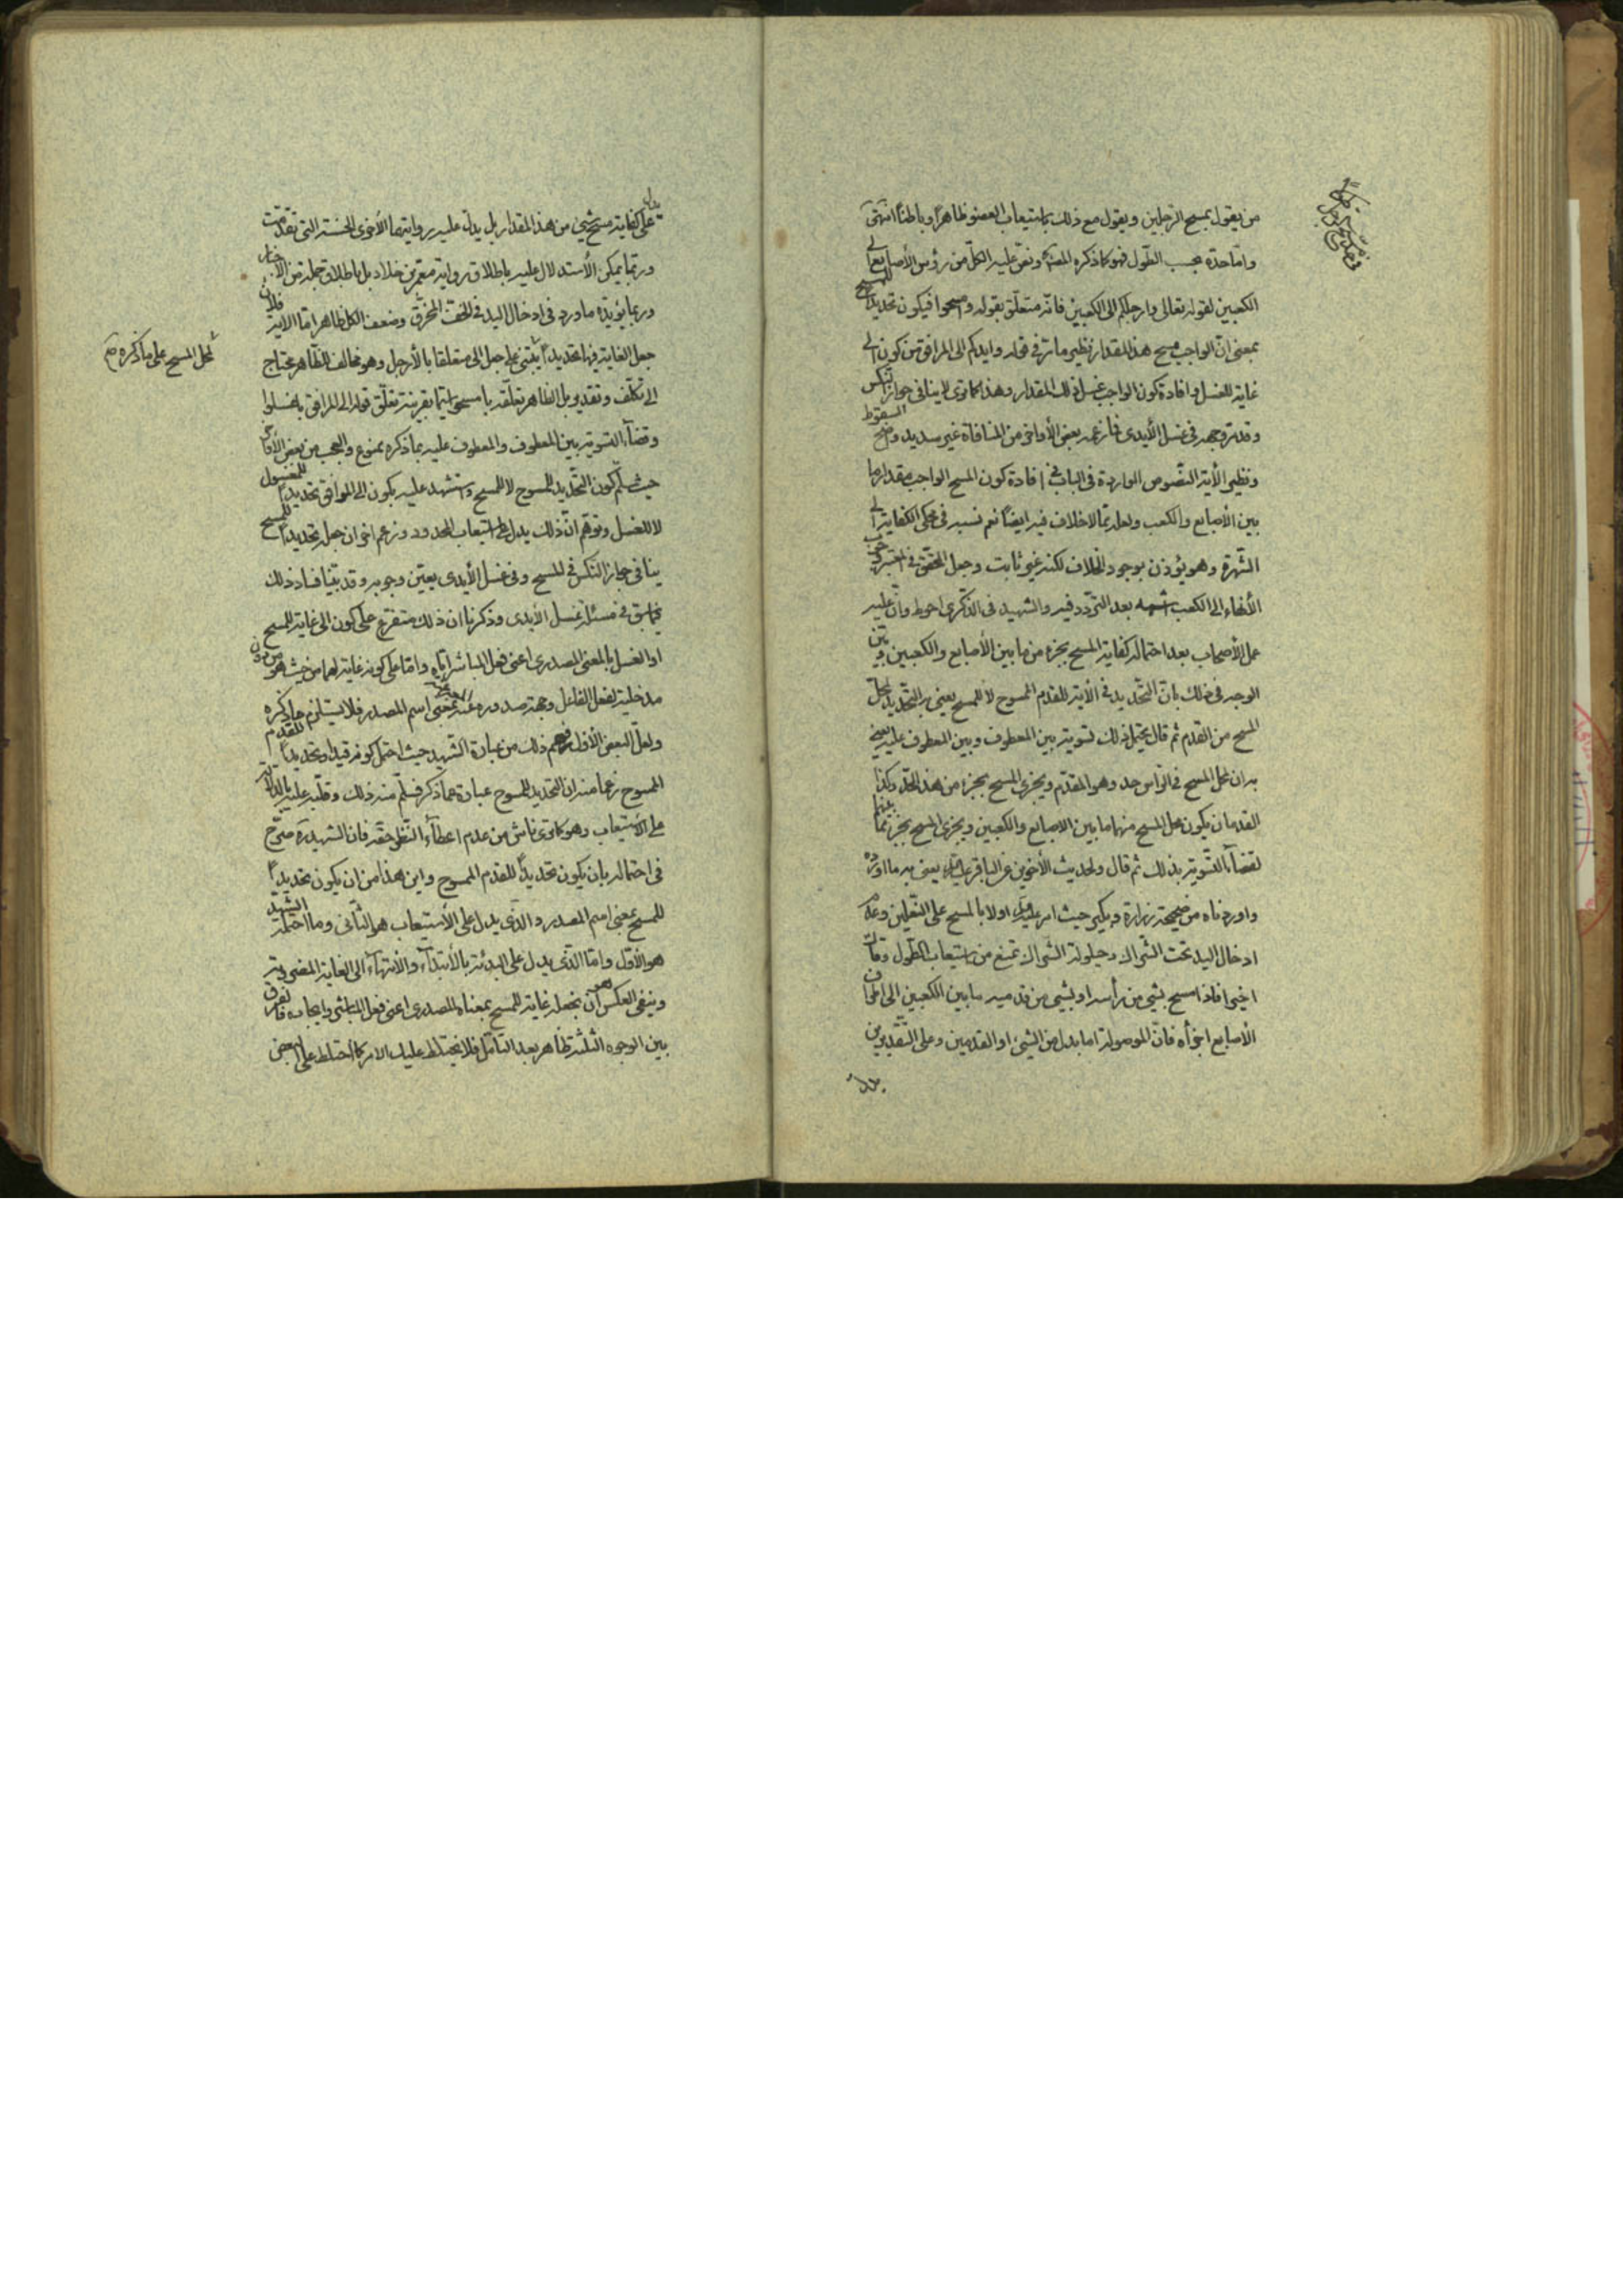 من يقول بمسح الرجلين ويقول مع ذلك باستيعاب العضو ظاهراً وباطناً انتهى
وامّا حدّه بحسب الطّول فهو كما ذكره المصنّف ونصّ عليه الكلّ من رؤس الأصابع إلى
الكعبين لقوله تعالى وارجلكم الى الكعبين فانّه متعلّق بقوله وامسحوا فيكون تحديداً للمسح
بمعنى انّ الواجب مسح هذا المقدار نظير ما مرّ في قوله وايديكم الى المرافق من كون الى
غاية للغسل وافادة كون الواجب غسل ذلك المقدار وهذا كما ترى لا ينافي جواز النكس
وقد مرّ وجهه في غسل الأيدي فما زعمه بعض الأواخر من المنافاة غير سديد واضح السقوط
ونظير الأية النّصوص الواردة في الباب في افادة كون المسح الواجب مقدار ما
بين الأصابع والكعب ولعله ممّا لا خلاف فيه ايضاً نعم نسبه في محكي الكفاية الى
الشّهرة وهو يؤذن بوجود الخلاف لكنه غير ثابت وجعل المحقّق في المعتبر وجوب
الأنهاء الى الكعب اشبه بعد التردّد فيه والشهيد في الذّكرى احوط وانّ عليه
عمل الأصحاب بعد احتماله كفاية المسح بجزء من ما بين الأصابع والكعبين وبيّن
الوجه في ذلك بانّ التّحديد في الأية للقدم الممسوح لا للمسح يعني به التّحديد لمحلّ
المسح من القدم ثم قال يحتمل ذلك تسوية بين المعطوف وبين المعطوف عليه يعني
به ان محل المسح في الرأس حد وهو المقدّم ويجزي المسح بجزء من هذا الحدّ وكذا
القدمان يكون محل المسح منهما ما بين الاصابع والكعبين ويجزي المسح بجزء ممّا بينهما
لقضاء التّسوية بذلك ثم قال ولحديث الأخوين عن الباقر عليه السلام يعني به ما اورده
واوردناه من صحيحة زرارة وبكير حيث امر عليه السلام اولا بالمسح على النّعلين وعدم
ادخال اليد تحت الشّراك وحيلولة الشّراك تمنع من استيعاب الطّول وقال
اخيراً فاذا مسح بشي من رأسه او بشي من قدميه ما بين الكعبين الى اطراف
الأصابع اجزأه فانّ الموصولة اما بدل من الشيء او القدمين وعلى التّقديرين
يدلّ
يدلّ
على كفاية مسح شيئ من هذا المقدار بل يدلّ عليه روايتهما الأخرى الحسنة التي تقدّمت
وربّما يمكن الأستدلال عليه باطلاق رواية معمّر بن خلاد بل باطلاق جملة من الأخبار
وربما يؤيّده ما ورد في ادخال اليد في الخفّ المخرّق وضعف الكل ظاهر امّا الاية فلانّ
جعل الغاية فيها تحديداً يبتني على جعل الى متعلقا بالأرجل وهو مخالف للظّاهر محتاج
محل المسح على ما ذكره
الى تكلّف وتقدير بل الظاهر تعلّقه بامسحوا سيّما بقرينة تعلّق قوله الى المرافق باغسلوا
وقضاء التسوية بين المعطوف والمعطوف عليه بما ذكره ممنوع والعجب من بعض الأواخر
حيث سلّم كون التّحديد للممسوح لا للمسح واستشهد عليه بكون الى المرافق تحديداً للمغسول
لا للغسل وتوهّم انّ ذلك يدل على استيعاب المحدود وزعم اخر ان جعله تحديداً للمسح
ينافي جواز النكس في المسح وفي غسل الأيدي يعيّن وجوبه وقد بيّنا فساد ذلك
فيما سبق في مسئلة غسل الأيدي وذكرنا ان ذلك متفرع على كون الى غاية للمسح
او الغسل بالمعنى المصدري اعني فعل المباشر ايّاه وامّا على كونه غاية لهما من حيث هو من دون
مدخلية لفعل الفاعل وجهة صدوره عنه بمعنى اسم المصدر فلا يستلزم ما ذكره
ولعل البعض الأوّل فهم ذلك من عبارة الشّهيد حيث احتمل كونه قيداً وتحديداً للقدم
الممسوح زعما منه ان التحديد للممسوح عبارة عمّا ذكر فسلّم منه ذلك وقلّبه عليه بالدلالة
على الأستيعاب وهو كما ترى ناش من عدم اعطاء النّظر حقّه فان الشهيد ره صرّح
في احتماله بان يكون تحديداً للقدم الممسوح واين هذا من ان يكون تحديداً
للمسح بمعنى اسم المصدر والذّي يدل على الأستيعاب هو الثّاني وما احتمله الشّهيد
هو الأوّل وامّا الذّي يدل على البدئة بالأبتداء والأنتهاء الى الغاية المضروبة
وينفي العكس هو ان نجعله غاية للمسح بمعناه المصدري اعني فعل المباشر وايجابه فالفرق
بين الوجوه الثلثة ظاهر بعد التأمّل فلا يختلط عليك الامر كما اختلط على البعض